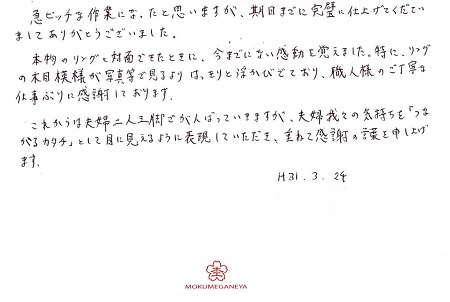 急ピッチな作業になったと思いますが、期日までに完璧に仕上げてください
ましてありがとうございました。
本物のリングと対面できたときに、今までにない感動を覚えました。特に、リング
の木目模様が写真等で見るよりはっきりと浮かびでており、職人様のご丁寧な
仕事ぶりに感謝しております。
これからは夫婦二人三脚でがんばっていきますが、夫婦我々の気持ちを「つな
がるカタチ」として目に見えるように表現していただき、重ねて感謝の言葉を申し上げ
ます。
H31.3.24
MOKUMEGANEYA